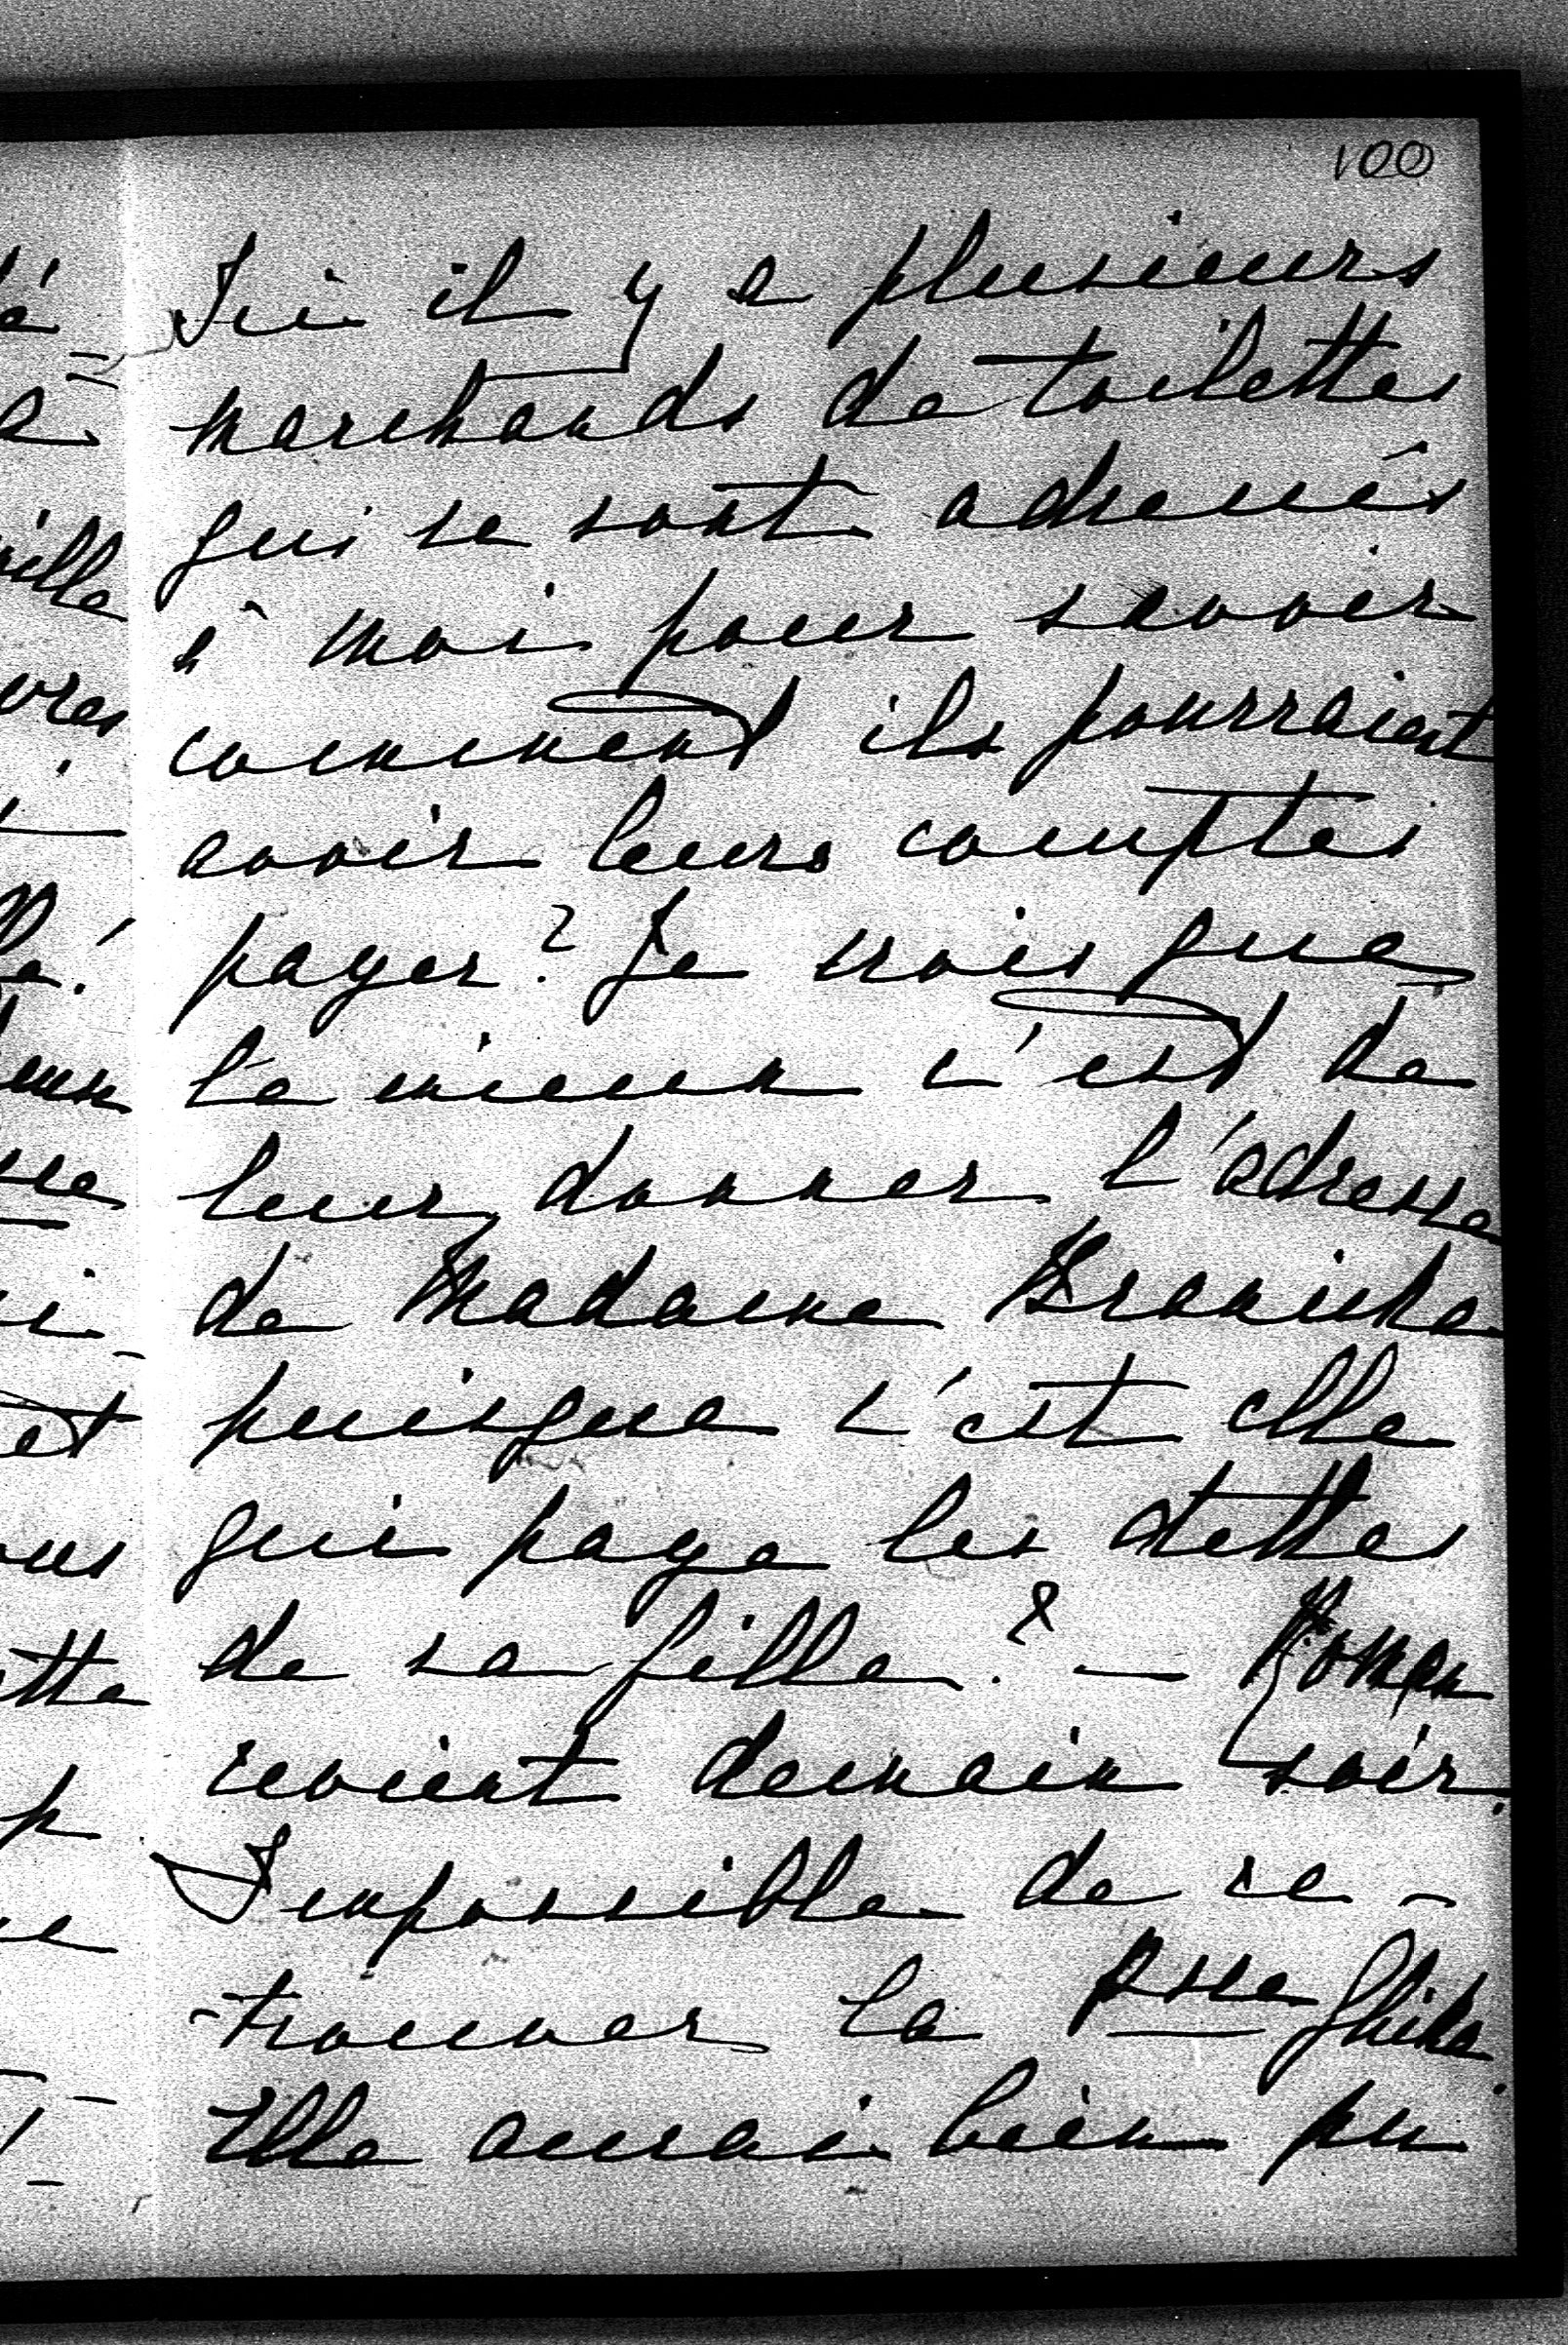 100
Ici il y a plusieurs
marchands de toilettes
qui se sont adressés
à moi pour savoir
comment ils pourraient
avoir leurs comptes
payer? Je crois que
le mieux c'est de
leur donner l'adresse
de Madame Branicka
puisque c'est elle
qui paye les dettes
de sa fille? — Roman
revient demain soir.
Impossible de re-
-trouver la Psse Ghika.
Elle aurai bien pu